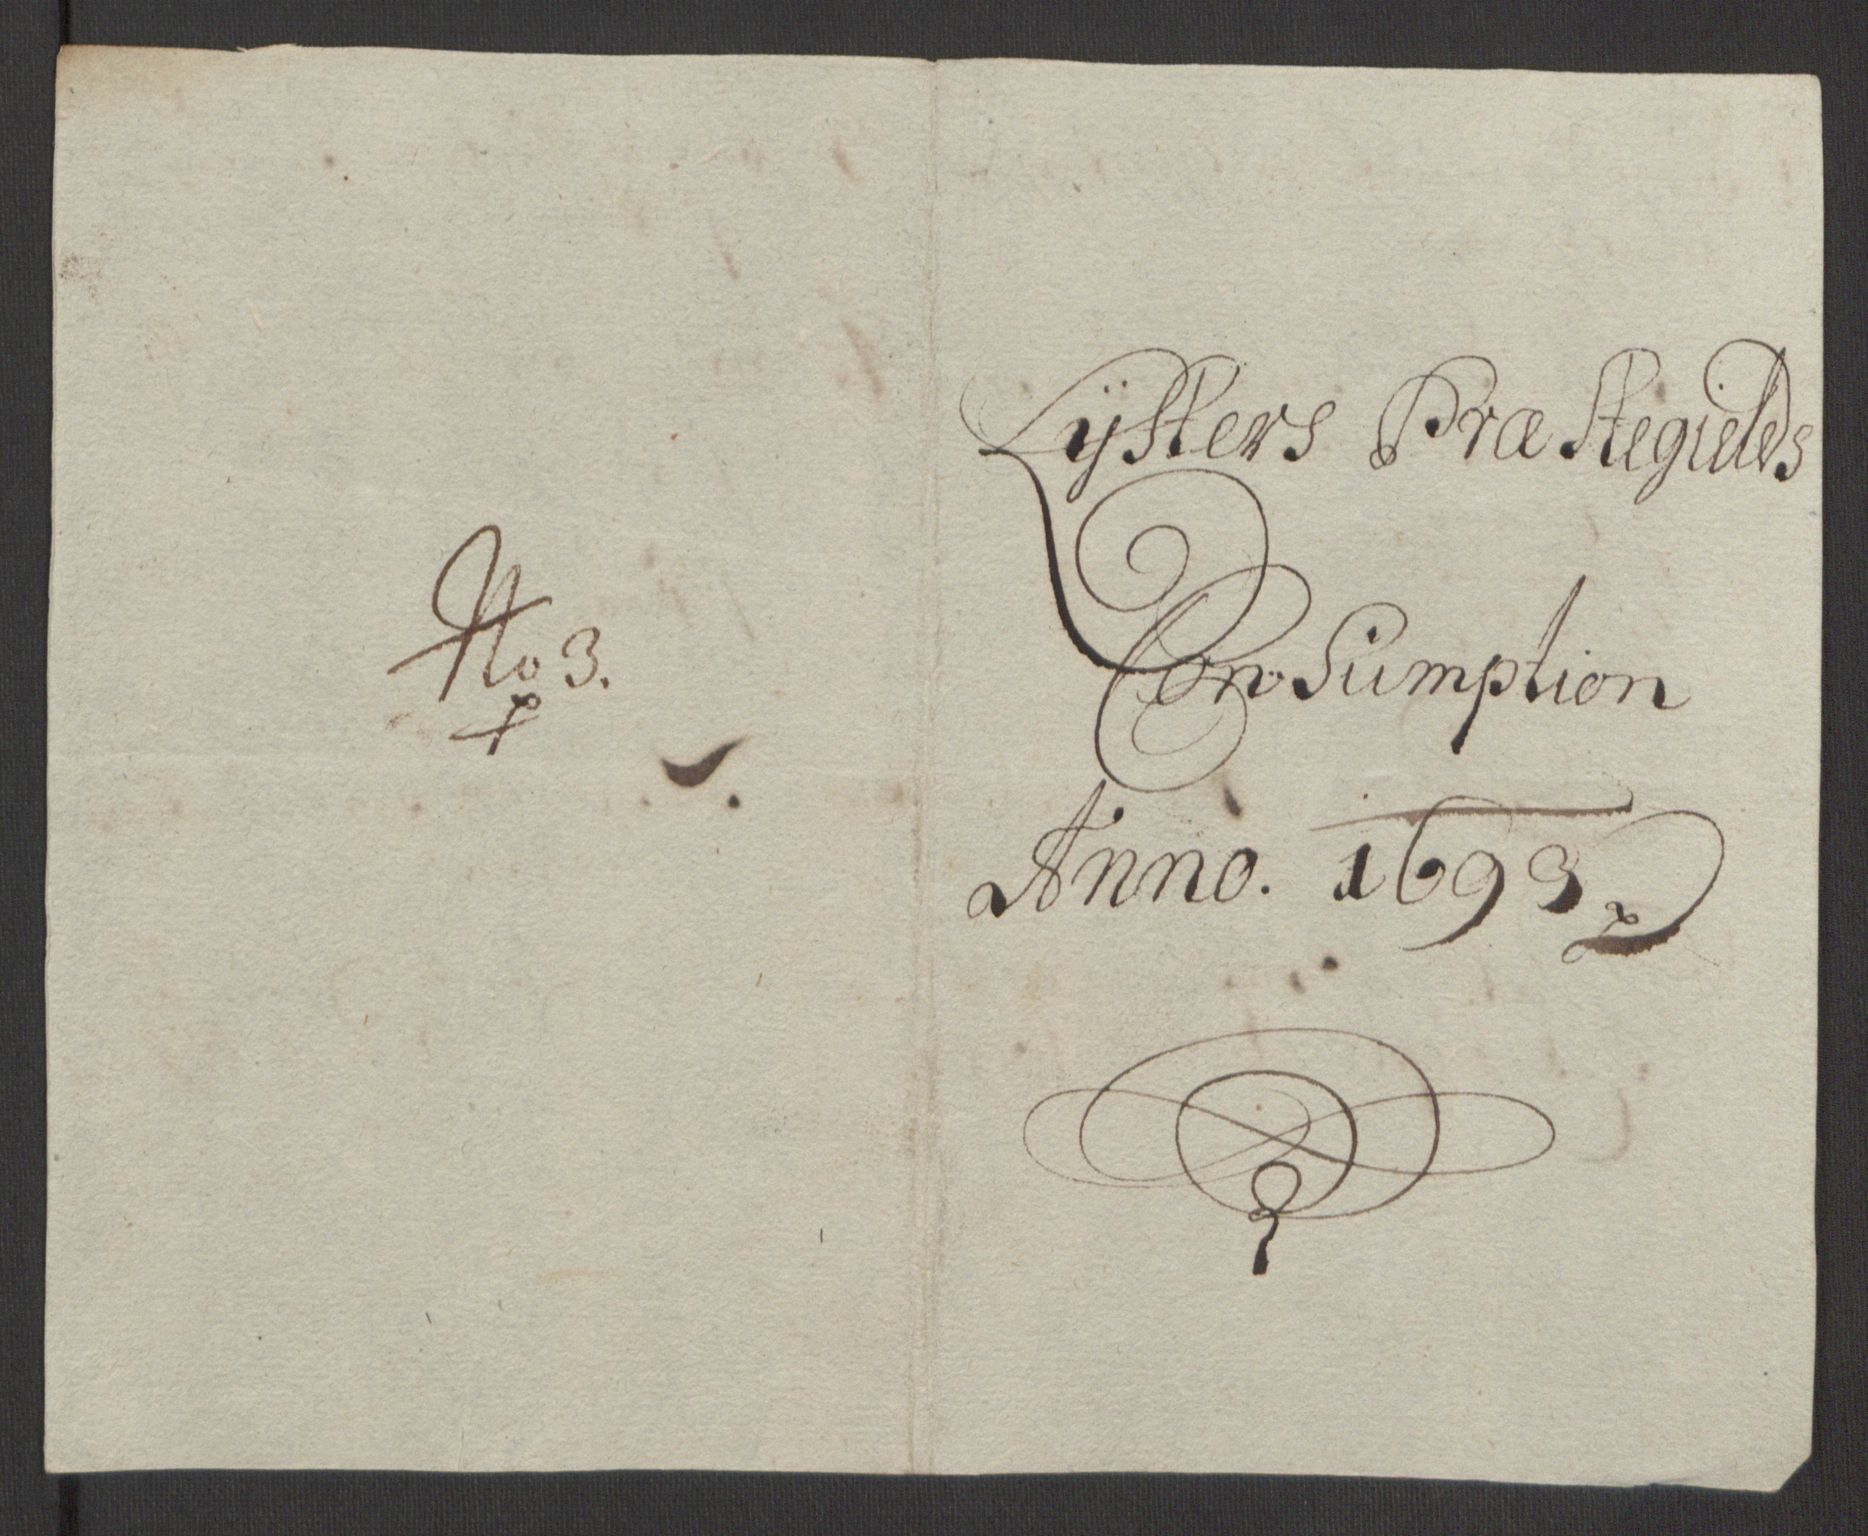 No 3.
Lÿsters Præstegields
Consumption
Anno. 1693